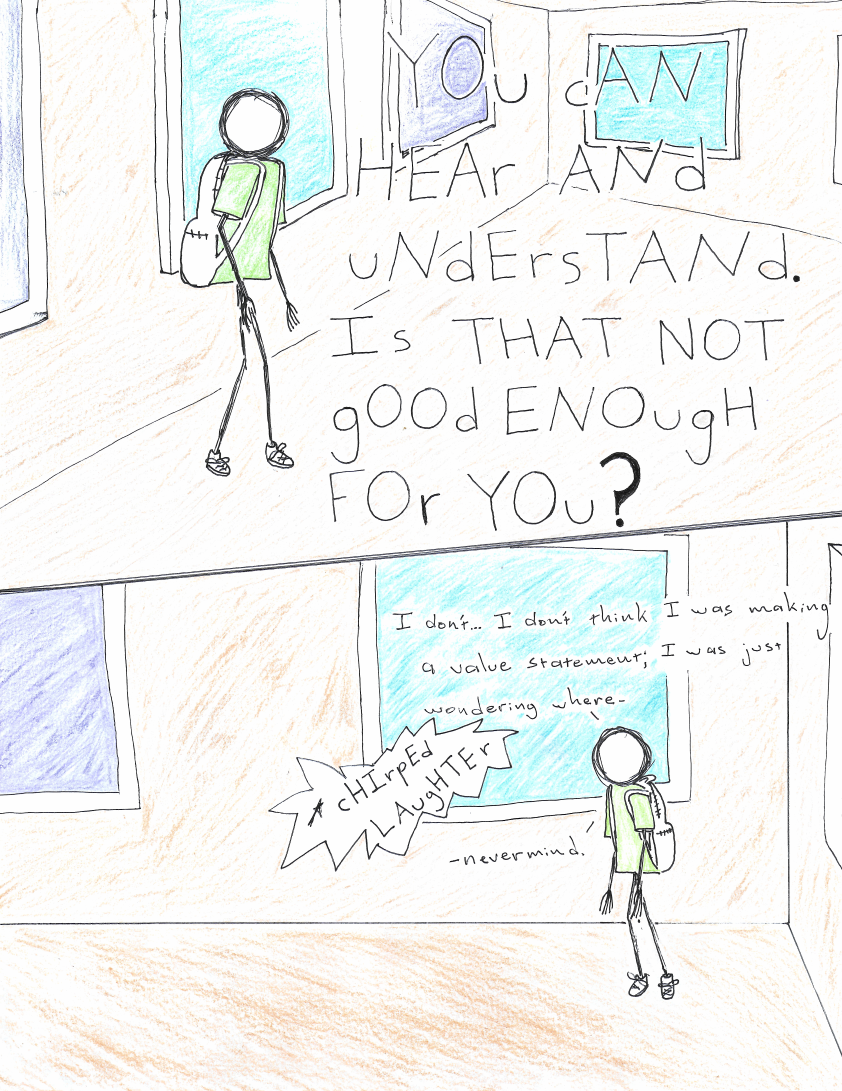 YOu cAN
HEAr ANd
uNdErsTANd.
Is THAT NOT
gOOd ENOugH
FOr YOu?
I don't... I don't think I was making
a value statement; I was just
wondering where-
* cHIrpEd
LAugHTEr
-nevermind.